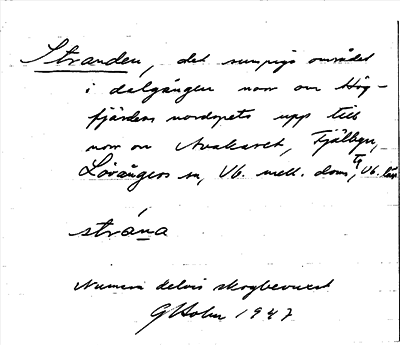 Stranden, det sumpiga området
i dalgången norr om Hög-
fjärdens nordspets upp till
norr om Avakäret, Fjälbyn,
Lövångers sn, Vb. mell. doms, Vb. län
stråna
Numera delvis skogbevuxet
G Holm 1947